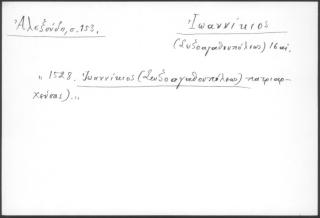 Ἀλεξούδη, σ. 153.
Ἰωαννίκιος
(Σωζοαγαθουπόλεως) 16 αἰ.
„ 1528. Ἰωαννίκιος (Σωζοαγαθουπόλεως) πατριαρ-
χεύσας)...